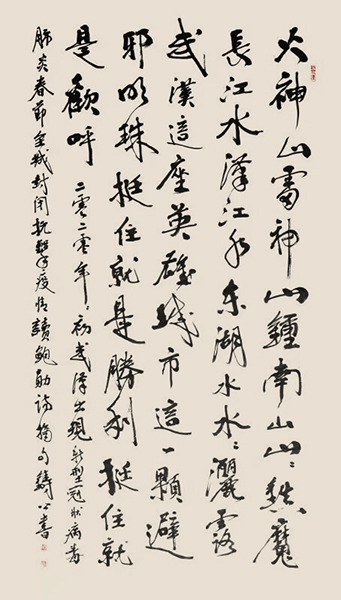 火神山雷神山鍾南山山〻鎮魔
長江水漢江水東湖水水〻灑露
武漢這座英雄城市這一顆避
邪明珠挺住就是勝利挺住就
是歡呼 二零二零年〻初武漢出現新型冠狀病毒
肺炎春節全城封閉抗擊疫情讀鮑勛詩摘句鑄公書